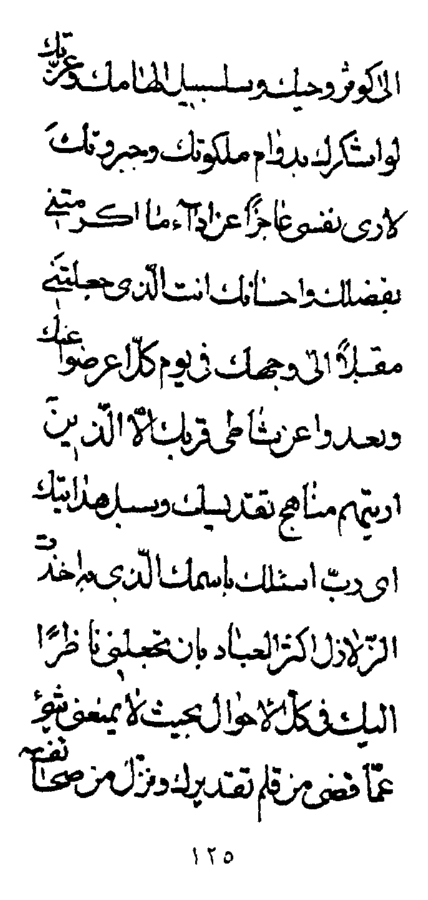 الی کوثر وحیک و سلسبیل الهامک و عزتک
لو اشکرک بدوام ملکوتک و جبروتک
لاری نفسی عاجزًا عن ادآء ما اکرمتنی
بفضلک و احسانک انت الّذی جعلتنی
مقبلًا الیٰ وجهک فی یوم کلّ اعرضوا عنک
و بعدوا عن شاطی قربک الّا الّذین
اریتهم مناهج تقدیسک و سبل هدایتک
ای ربّ اسئلک باسمک الّذی به اخذت
الزّلازل اکثر العباد بان تجعلنی ناظرًا
الیک فی کلّ الاحوال بحیث لا یمنعنی شیء
عمّا قضی من قلم تقدیرک و نزّل من
١٢٥